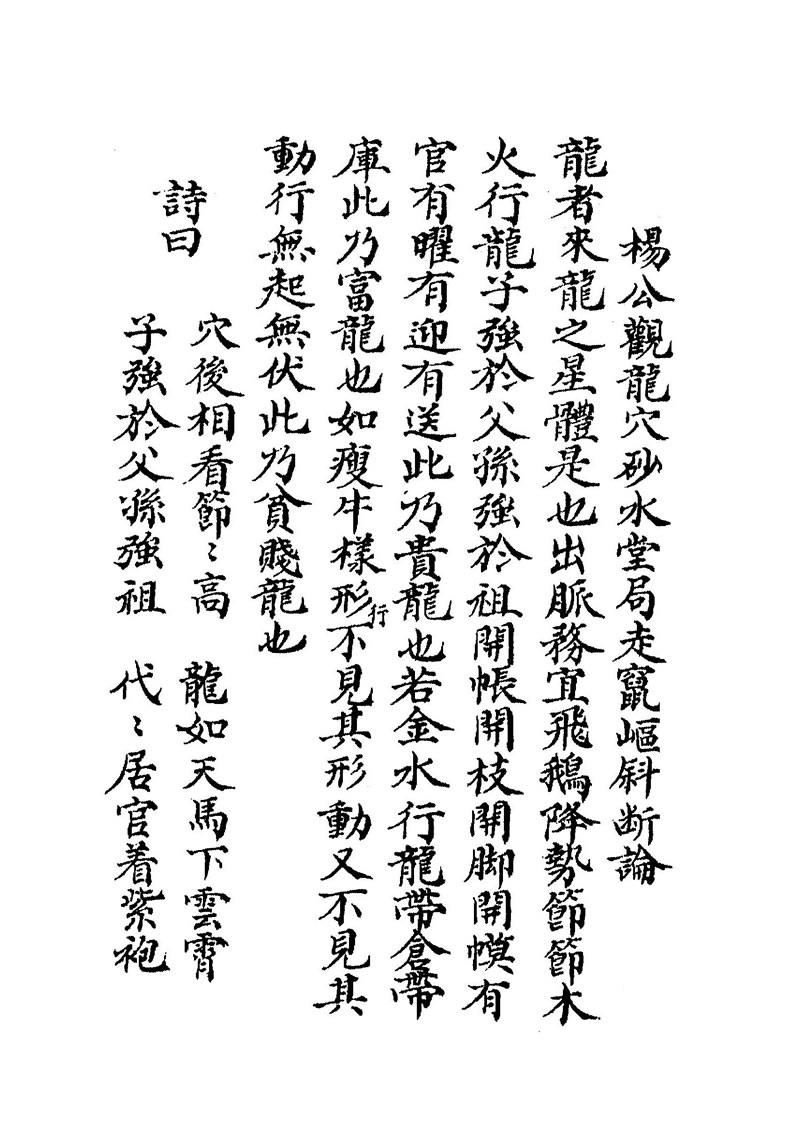 楊公觀龍穴砂水堂局走竄嶇斜断論
龍者來龍之星體是也出脈務宜飛鵝降勢節節木
火行龍子強於父孫強於祖開帳開枝開脚開幙有
官有曜有迎有送此乃貴龍也若金水行龍帶倉帶
庫此乃富龍也如瘦牛樣形行不見其形動又不見其
動行無起無伏此乃貧賤龍也
詩曰
穴後相看節〻高　龍如天馬下雲霄
子強於父孫強祖　代〻居官着紫袍